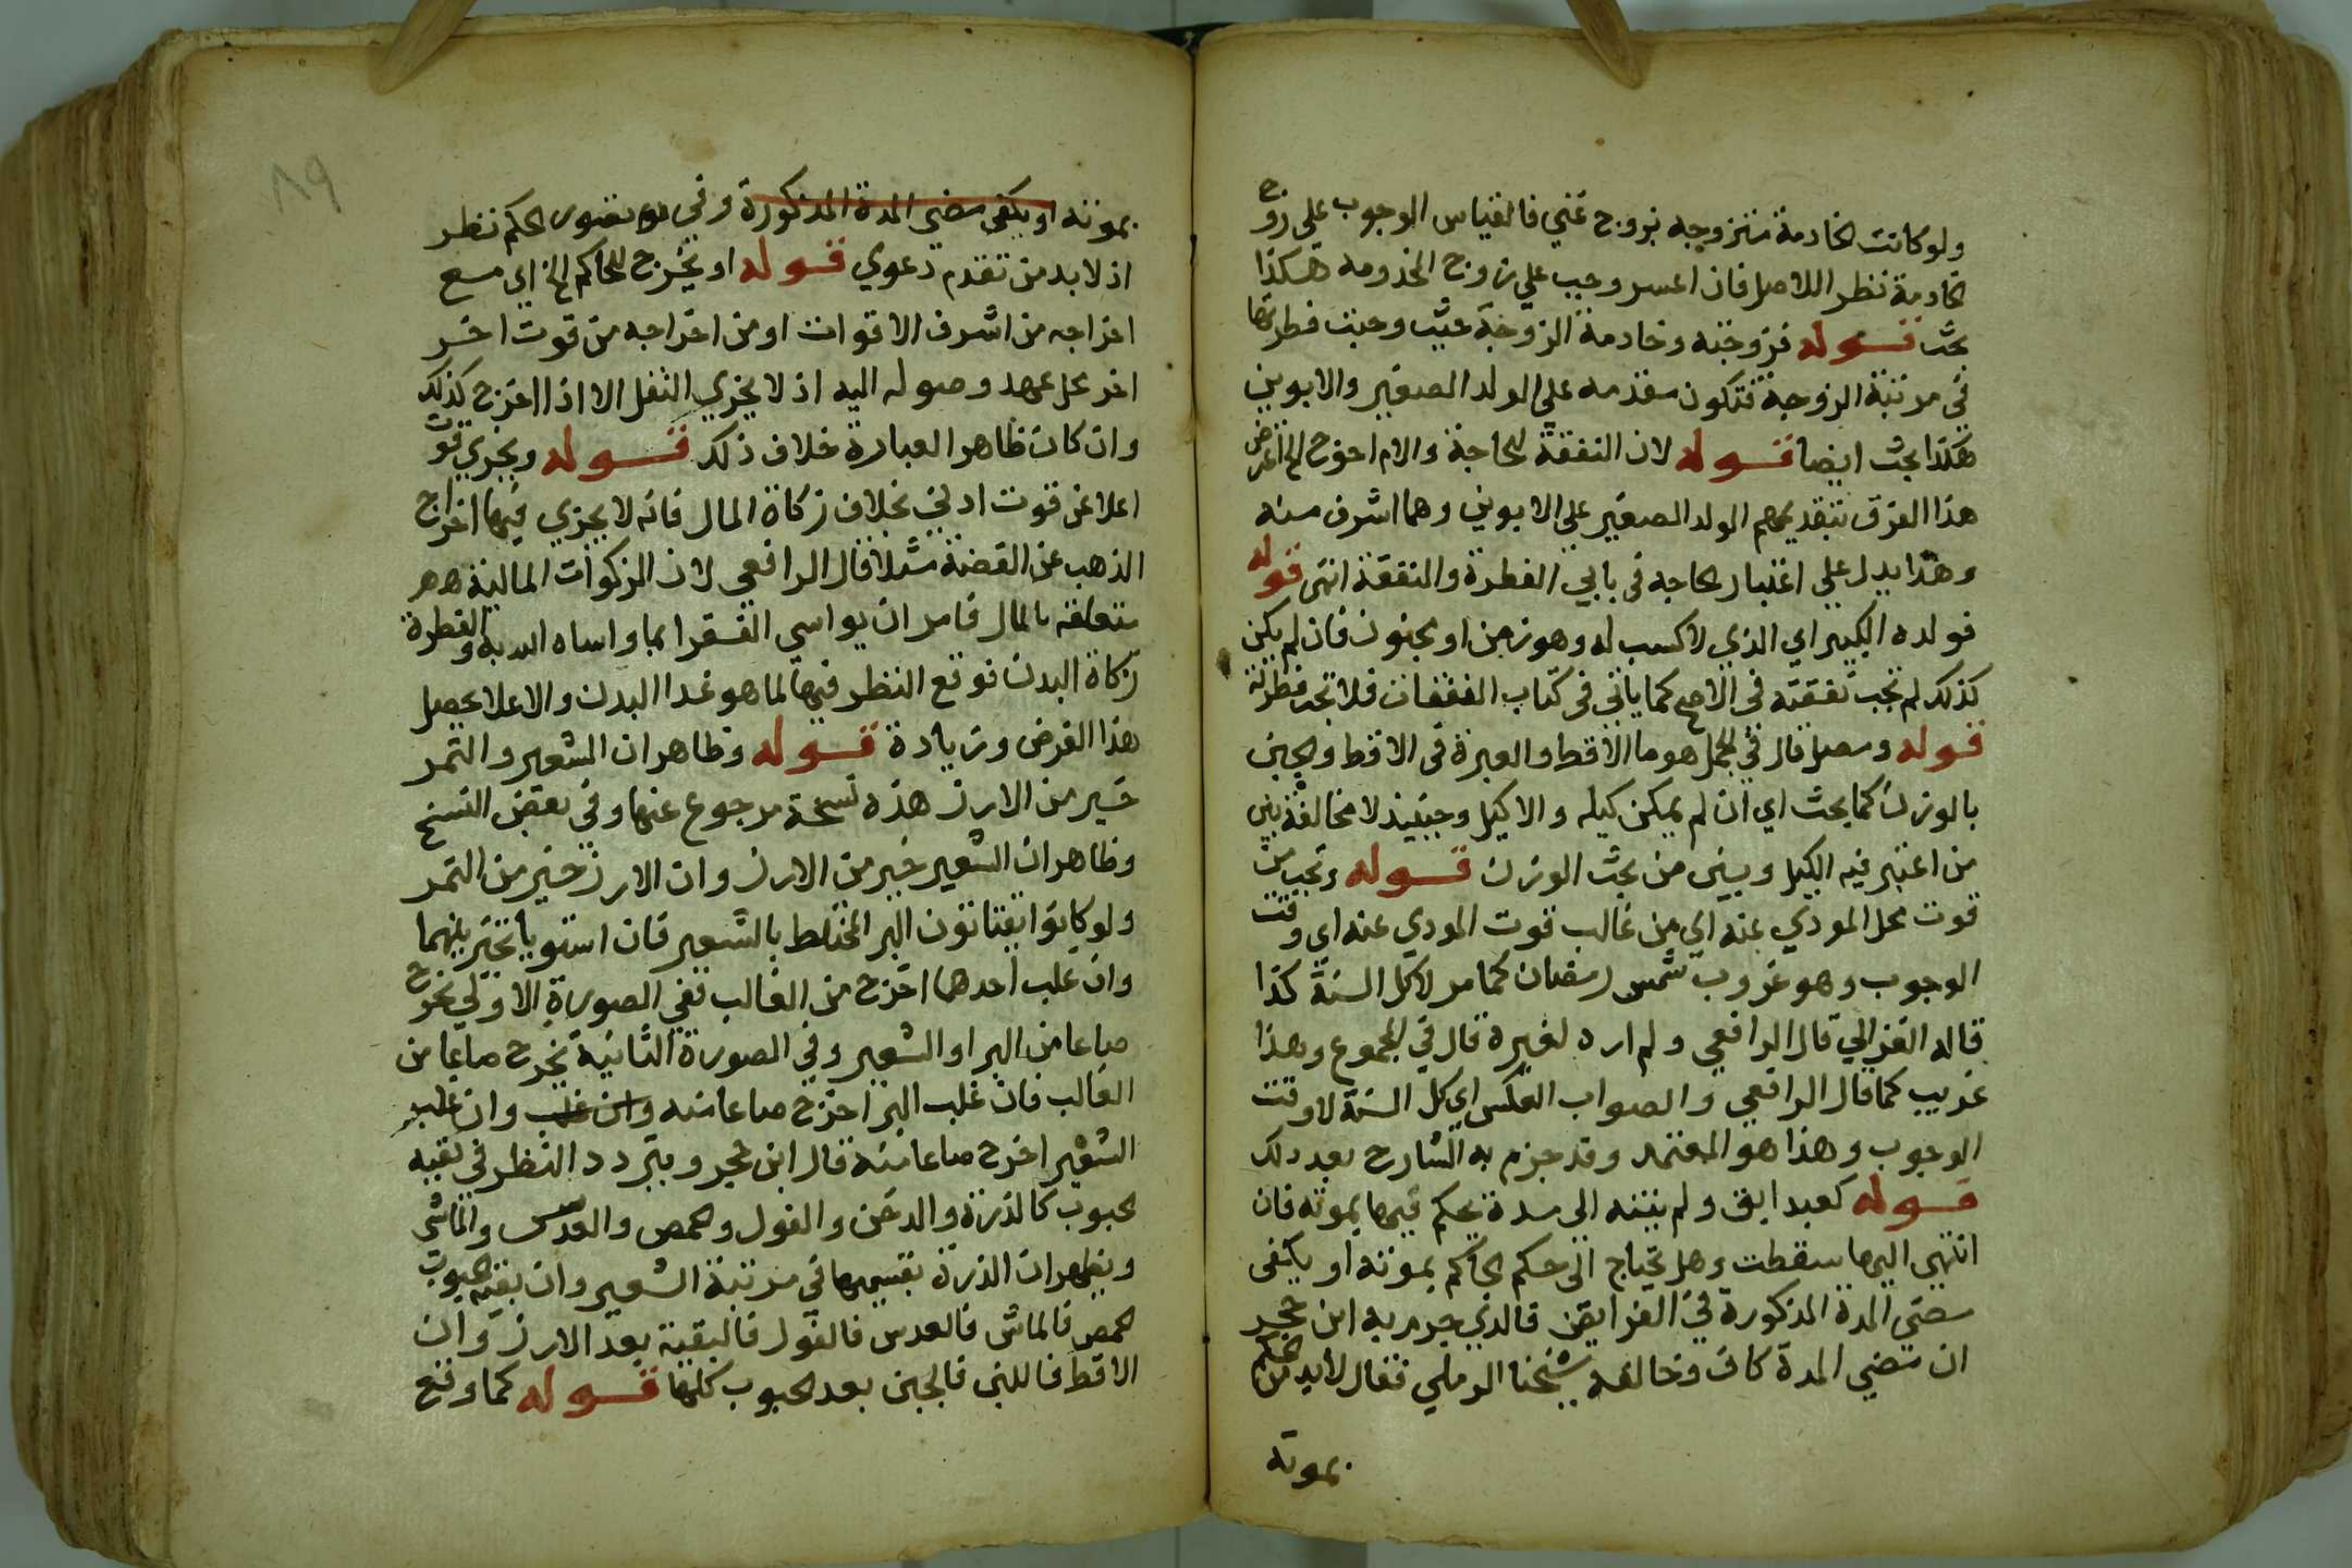 ولو كانت الخادمة متزوجه بزوج غني فالقياس الوجوب علي زوج
الخادمة نظر اللاصل فان اعسر وجب علي زوج المخدومه هكذا
بحث قوله فزوجته وخادمة الزوجة حيث وجبت فطرتها
في مرتبة الزوجة فتكون مقدمه علي الولد الصغير والابوين
هكذا بحث ايضا قوله لان النفقة للحاجة والام احوج الخ اعترض
هذا الفرق بتقديمهم الولد الصغير علي الابوين وهما اشرف منه
وهذا يدل علي اعتبار الحاجه في بابي الفطرة والنفقة انتهى قوله
فولده الكبير اي الذي لا كسب له وهو زمن او مجنون فان لم يكن
كذلك لم تجب نفقته في الاصح كما ياتي في كتاب النفقات فلا تجب فطرته
قوله ومصل قال في المجمل هو ما الاقط والعبرة في الاقط والجبن
بالوزن كما بحث اي ان لم يمكن كيله والا كيل وحينيذ لا مخالفة بين
من اعتبر فيه الكيل وبين من بحث الوزن قوله وتجب من
قوت محل المودي عنه اي من غالب قوت المودي عنه اي وقت
الوجوب وهو غروب شمس رمضان كما مر لا كل السنة كذا
قاله الغزالي قال الرافعي ولم اره لغيره قال في المجموع وهذا
غريب كما قال الرافعي والصواب العكس اي كل السنة لا وقت
الوجوب وهذا هو المعتمد وقد جزم به الشارح بعد ذلك
قوله كعبد ابق ولم ينته الى مدة يحكم فيها بموته فان
انتهي اليها سقطت وهل يحتاج الى حكم الحاكم بموته او يكفى
مضي المدة المذكورة في الفرايض فالذي جرم به ابن حجر
ان مضي المدة كاف وخالفه شيخنا الرملي فقال لابد من الحكم
بموته
٨٩
بموته او يكفى مضي المدة المذكورة وفي الحكم نظر
اذ لا بد من تقدم دعوي قوله او يخرج للحاكم الخ اي مع
اخراجه من اشرف الاقوات او من اخراجه من قوت اخر
اخر محل عهد وصوله اليه اذ لا يجزي النقل الا اذا اخرج كذلك
وان كان ظاهر العبارة خلاف ذلك قوله ويجزي قوت
اعلا عن قوت ادني بخلاف زكاة المال فانه لا يجزي فيها اخراج
الذهب عن الفضة مثلا قال الرافعي لان الزكوات المالية
متعلقه بالمال فامر ان يواسي الفقرا بما واساه الله به والفطرة
زكاة البدن فوقع النظر فيها لما هو غدا البدن والاعلا يحصل
هذا الغرض وزيادة قوله وظاهر ان الشعير والتمر
خير من الارز هذه نسخة مرجوع عنها وفي بعض النسخ
وظاهر ان الشعير خير من الارز وان الارز خير من التمر
ولو كانوا يقتاتون البر المختلط بالشعير فان استويا تخير بينهما
وان غلب احدهما اخرج من الغالب ففي الصورة الاولي يخرج
صاعا من البر او الشعير وفي الصورة الثانية يخرج صاعا من
الغالب فان غلب البر اخرج صاعا منه وان غلب وان غلب
الشعير اخرج صاعا منه قال ابن حجر ويتردد النظر في بقيه
الحبوب كالذرة والدخن والفول والحمص والعدس والماش
ويظهر ان الذرة بقسيميها في مرتبة الشعير وان بقيه الحبوب
الحمص فالماش فالعدس فالفول فالبقية بعد الارز وان
الاقط فاللبن فالجبن بعد الحبوب كلها قوله كما وقع